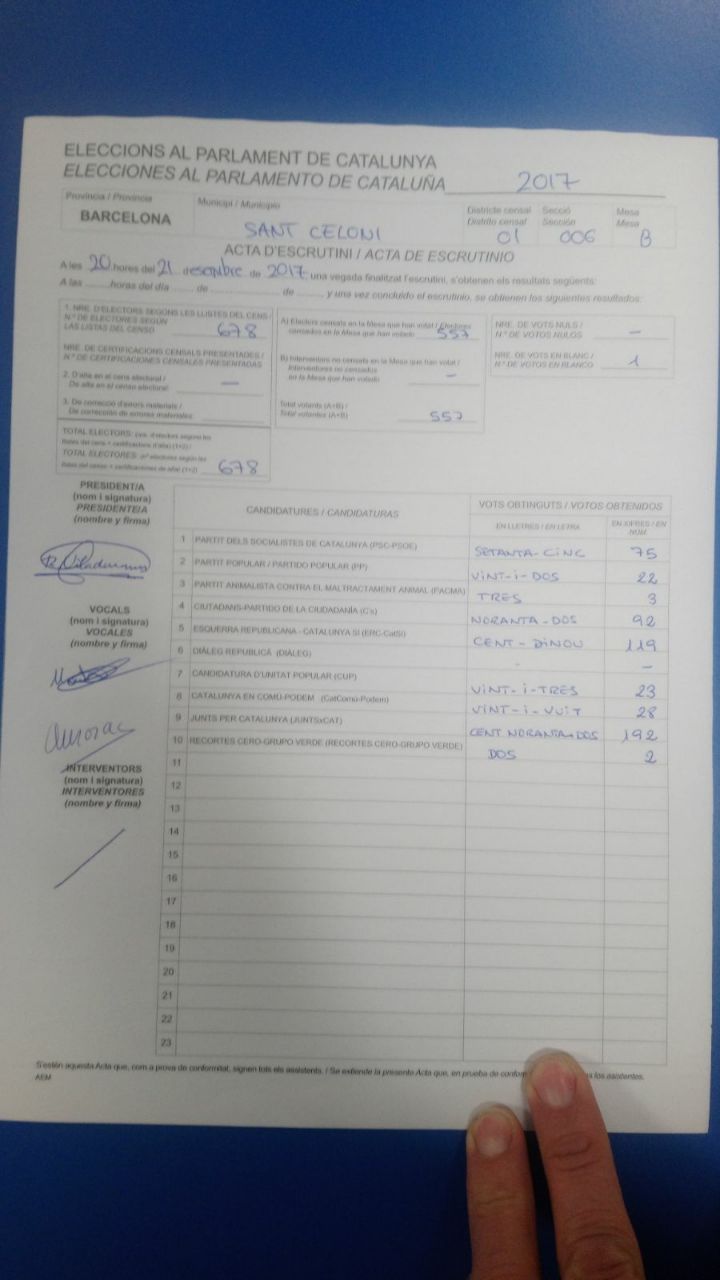 ELECCIONS AL PARLAMENT DE CATALUNYA
ELECCIONES AL PARLAMENTO DE CATALUÑA 2017
Província / Provincia
BARCELONA
Municipi / Municipio
SANT CELONI
Districte censal
Distrito censal
01
Secció
Sección
006
Mesa
Mesa
B
ACTA D'ESCRUTINI / ACTA DE ESCRUTINIO
A les 20 hores del 21 desembre de 2017 una vegada finalitzat l'escrutini, s'obtenen els resultats següents:
A las ........ horas del día ........ de ........ de ........ y una vez concluido el escrutinio, se obtienen los siguientes resultados:
1. NRE. D'ELECTORS SEGONS LES LLISTES DEL CENS /
N.º DE ELECTORES SEGÚN
LAS LISTAS DEL CENSO 678
NRE. DE CERTIFICACIONS CENSALS PRESENTADES /
N.º DE CERTIFICACIONES CENSALES PRESENTADAS
2. D'alta en el cens electoral /
De alta en el censo electoral: —
3. De correcció d'errors materials /
De corrección de errores materiales:
TOTAL ELECTORS: (nre. d'electors segons les
llistes del cens + certificacions d'alta) (1+2) /
TOTAL ELECTORES: (nº electores según las
listas del censo + certificaciones de alta) (1+2) 678
A) Electors censats en la Mesa que han votat / Electores
censados en la Mesa que han votado 557
B) Interventors no censats en la Mesa que han votat /
Interventores no censados
en la Mesa que han votado —
Total votants (A+B) /
Total votantes (A+B) 557
NRE. DE VOTS NULS /
N.º DE VOTOS NULOS —
NRE. DE VOTS EN BLANC /
N.º DE VOTOS EN BLANCO 1
PRESIDENT/A
(nom i signatura)
PRESIDENTE/A
(nombre y firma)
VOCALS
(nom i signatura)
VOCALES
(nombre y firma)
INTERVENTORS
(nom i signatura)
INTERVENTORES
(nombre y firma)
CANDIDATURES / CANDIDATURAS
VOTS OBTINGUTS / VOTOS OBTENIDOS
EN LLETRES / EN LETRA
EN XIFRES / EN NÚM.
1 PARTIT DELS SOCIALISTES DE CATALUNYA (PSC-PSOE) SETANTA-CINC 75
2 PARTIT POPULAR / PARTIDO POPULAR (PP) VINT-I-DOS 22
3 PARTIT ANIMALISTA CONTRA EL MALTRACTAMENT ANIMAL (PACMA) TRES 3
4 CIUTADANS-PARTIDO DE LA CIUDADANÍA (C's) NORANTA-DOS 92
5 ESQUERRA REPUBLICANA - CATALUNYA SÍ (ERC-CatSí) CENT-DINOU 119
6 DIÀLEG REPUBLICÀ (DIÀLEG) - —
7 CANDIDATURA D'UNITAT POPULAR (CUP) VINT-I-TRES 23
8 CATALUNYA EN COMÚ-PODEM (CatComú-Podem) VINT-I-VUIT 28
9 JUNTS PER CATALUNYA (JUNTSxCAT) CENT NORANTA-DOS 192
10 RECORTES CERO-GRUPO VERDE (RECORTES CERO-GRUPO VERDE) DOS 2
11
12
13
14
15
16
17
18
19
20
21
22
23
S'estén aquesta Acta que, com a prova de conformitat, signen tots els assistents. / Se extiende la presente Acta que, en prueba de los asistentes.
AEM